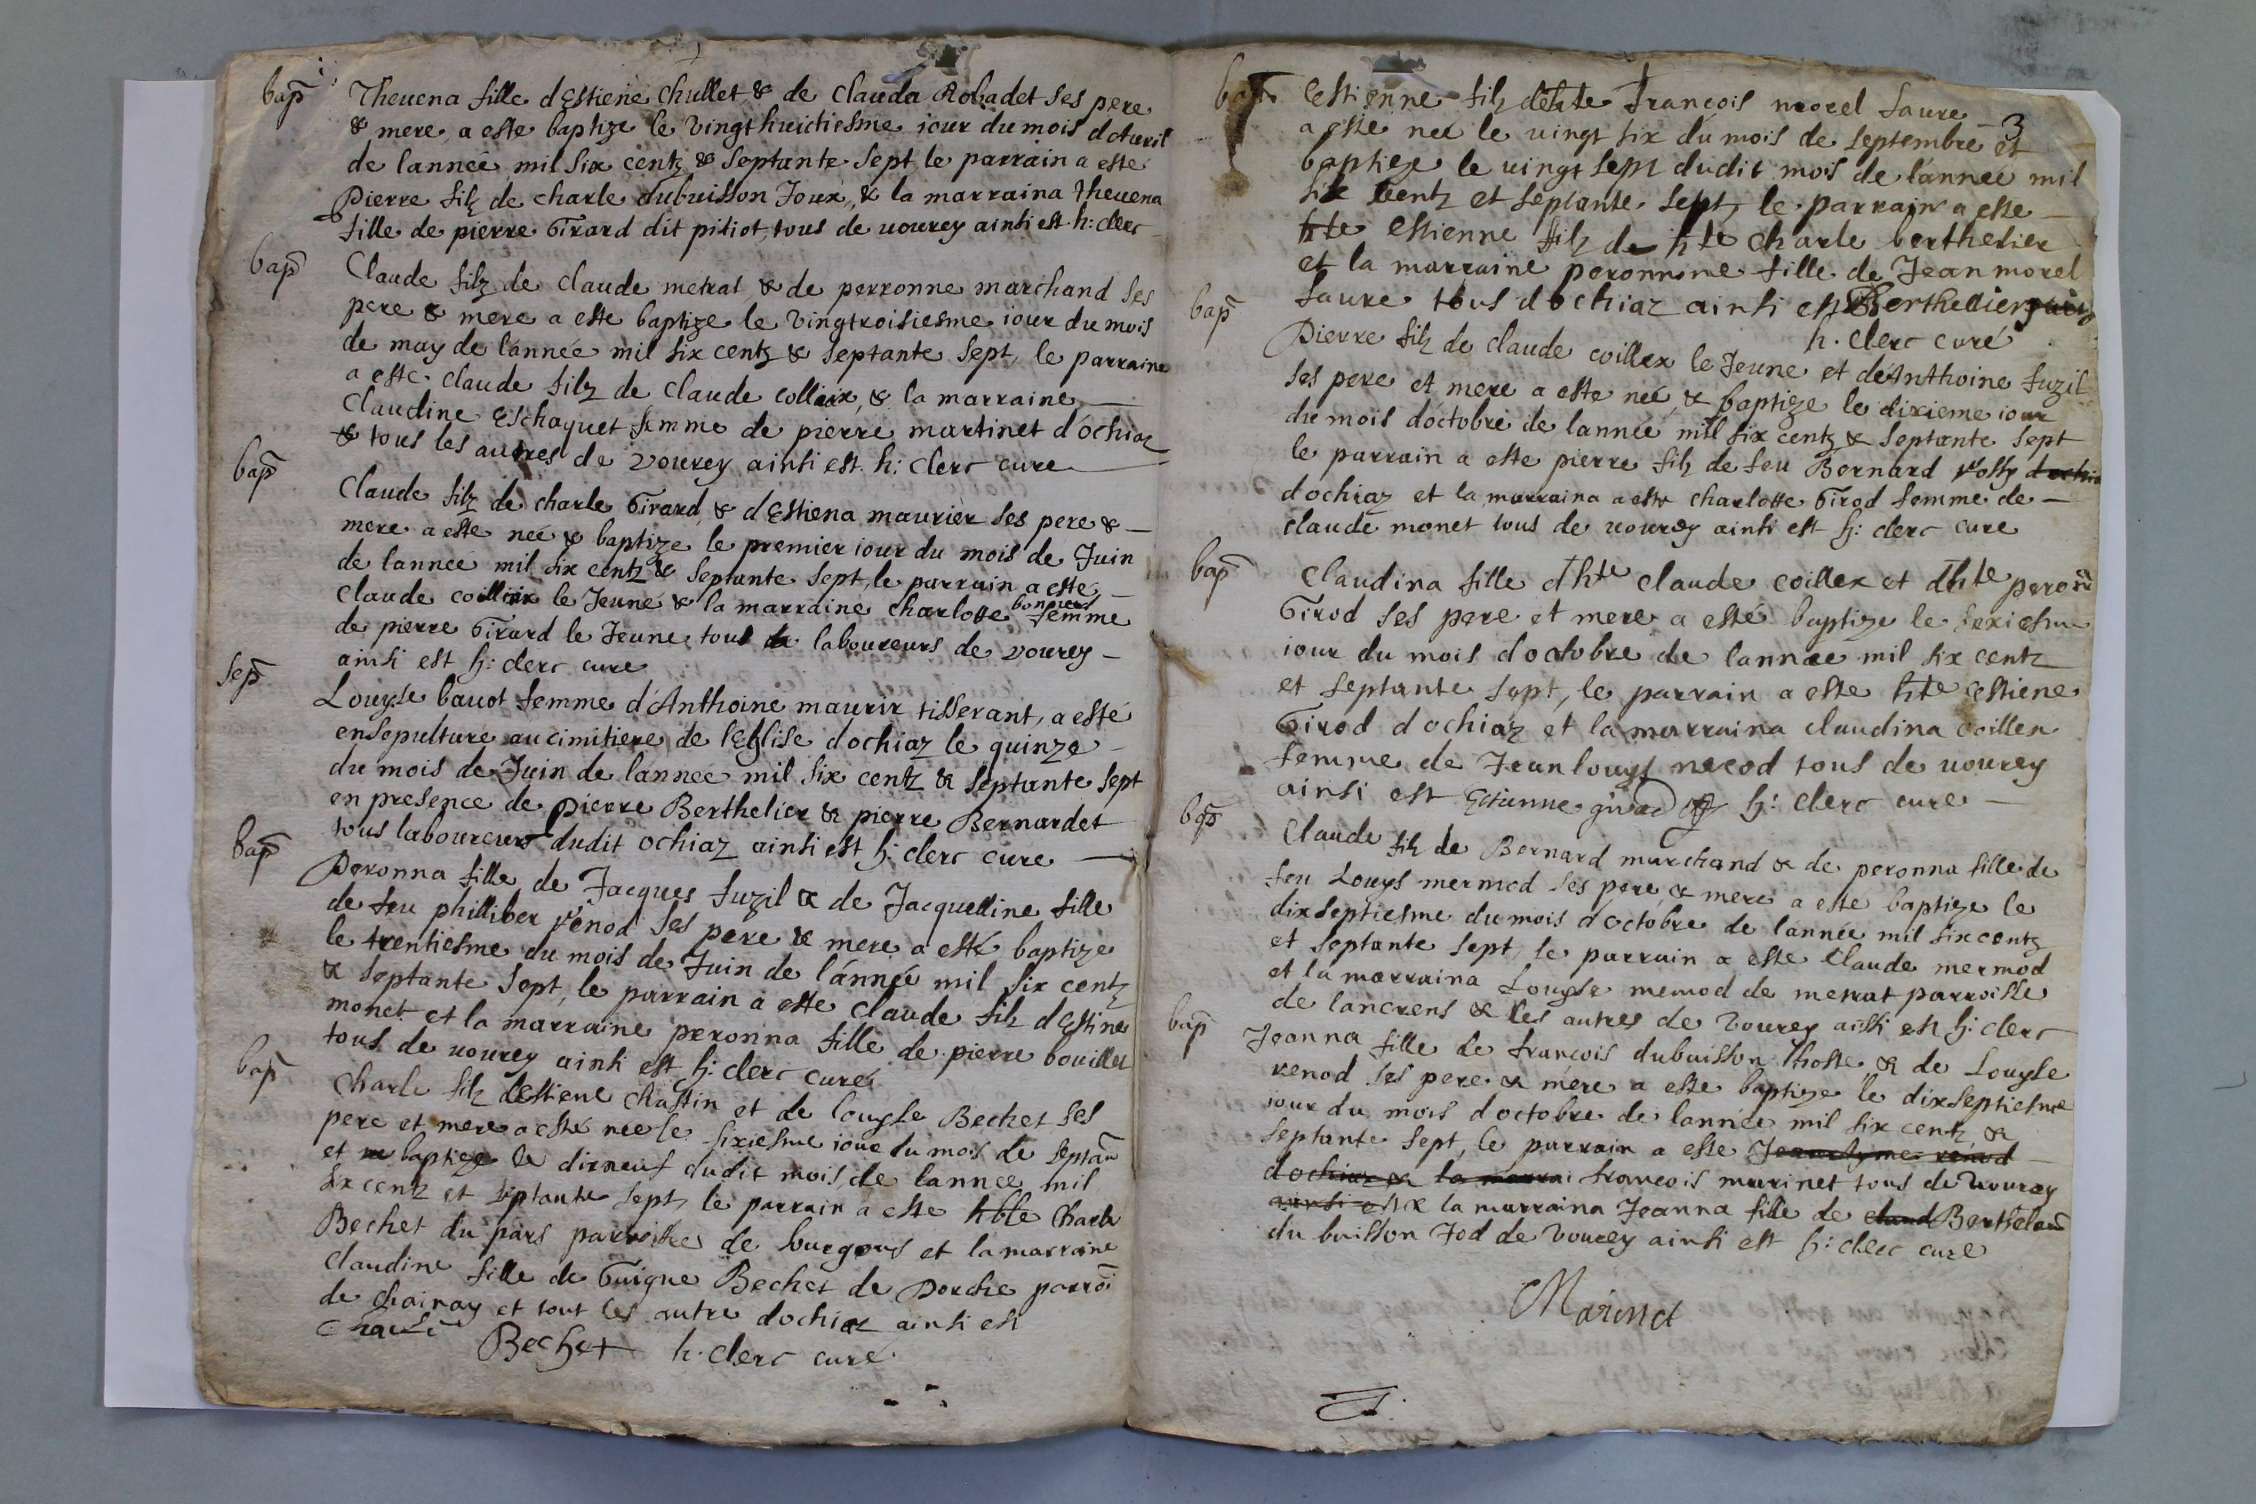 bap
Thevena fille dEstiene Chullet & de Clauda Robadet ses pere
& mere, a este baptize le vingthuictiesme iour du mois dAvril
de lannee mil six centz & septante sept, le parrain a esté
Pierre filz de charle dubuisson Joux, & la marraina thevena
fille de pierre Girard dit pitiot, tous de vourey ainsi est h: clerc
bap
Claude filz de claude metrat & de perronne marchand ses
pere & mere a este baptize le vingtroisiesme iour du mois
de may de lannée mil six centz & septante sept, le parraine
a este claude filz de claude colliex, & la marraine
Claudine Eschaquet femme de pierre martinet dochiaz
& tous les autres de vourey ainsi est h: clerc cure
bap
Claude filz de charle Girard, & dEstiena maurier ses pere &
mere a este neé & baptize le premier iour du mois de Juin
de lannee mil six centz & septante sept, le parrain a esté
claude coillex le Jeune & la marraine charlotte femme
de pierre Girard le Jeune tous laboureurs de vourey
ainsi est h: clerc cure
sep
Louyse bavot femme dAnthoine maurir tisserant, a esté
ensepulture au cimitiere de lEglise dochiaz le quinze
du mois de Juin de lanneé mil six centz & septante sept
en presence de pierre Berthelier & pierre Bernardet
tous laboureurs dudit ochiaz ainsi est h: clerc cure
bap
Peronna fille de Jacques fuzil & de Jacquelline fille
de feu philliber venod ses pere & mere a esté baptize
le trentiesme du mois de Juin de lánneé mil six centz
& septante sept, le parrain a este claude filz dEstine
monet et la marraine peronna fille de pierre bouillet
tous de vourey ainsi est h: clerc curé
bap
Charle filz dEstiene Chastin et de louyse Bechet ses
pere et mere a esté nee le sixiesme iour du mois de septam
et baptize le dixneuf dudit mois de lannee mil
six centz et septante sept, le parrain a este hble Charle
Bechet du pars parroisse de bourgous et la marraine
claudine fille de Guigue Bechet de Dorche parroi
de chainay et tout les autre dochiaz ainsi est
Bechet h. clerc curé
3
bap
Estienne filz dehte françois morel faure
a este neé le vingt six du mois de septembre et
baptize le vingt sept dudit mois de lánneé mil
six centz et septante sept, le parrain a este
hte estienne filz de hte charle berthelier
et la marraine peronnne fille de Jean morel
faure tous dochiaz ainsi est Berthellier
h. clerc curé
bap
Pierre filz de claude coillex le Jeune et deAnthoine fuzil
ses pere et mere a este neé, & baptize le dixieme iour
du mois doctobre de lanneé mil six centz & septante sept
le parrain a este pierre filz de feu Bernard vossy dochia
dochiaz et la marraina a este charlotte Girod femme de
claude monet tous de vourey ainsi est h: clerc cure
bap
Claudina fille dhte claude coillex et dhte peroñ
Girod ses pere et mere a esté baptize le sexiesme
iour du mois doctobre de lannee mil six centz
et septante sept, le parrain a este hte estiene
Girod dochiáz et la marraina claudina coillex
femme de Jeanlouys necod tous de vourey
ainsi est Estienne girad h: clerc cure
bap
Claude filz de Bernard marchand & de peronna fille de
feu Louys mermod ses pere & mere a este baptize le
dixseptiesme du mois doctobre de lannée mil six centz
et septante sept, le parrain a este Claude mermod
et la marraina Louyse memod de metrat parroisse
de lancrens & les autres de vourey aissi est h: clerc
bap
Jeanna fille de françois dubuisson lhoste, & de Louyse
venod ses pere & mere a este baptize le dixseptiesme
iour du mois doctobre de lannée mil six centz &
septante sept, le parrain a este Jeanclyme venod
dochiaz & la marrai françois marinet tous de vourey
ainsi est & la marraina Jeanna fille de claud Berthelem
du buisson Jod de vourey ainsi est h: clerc cure
Marinet